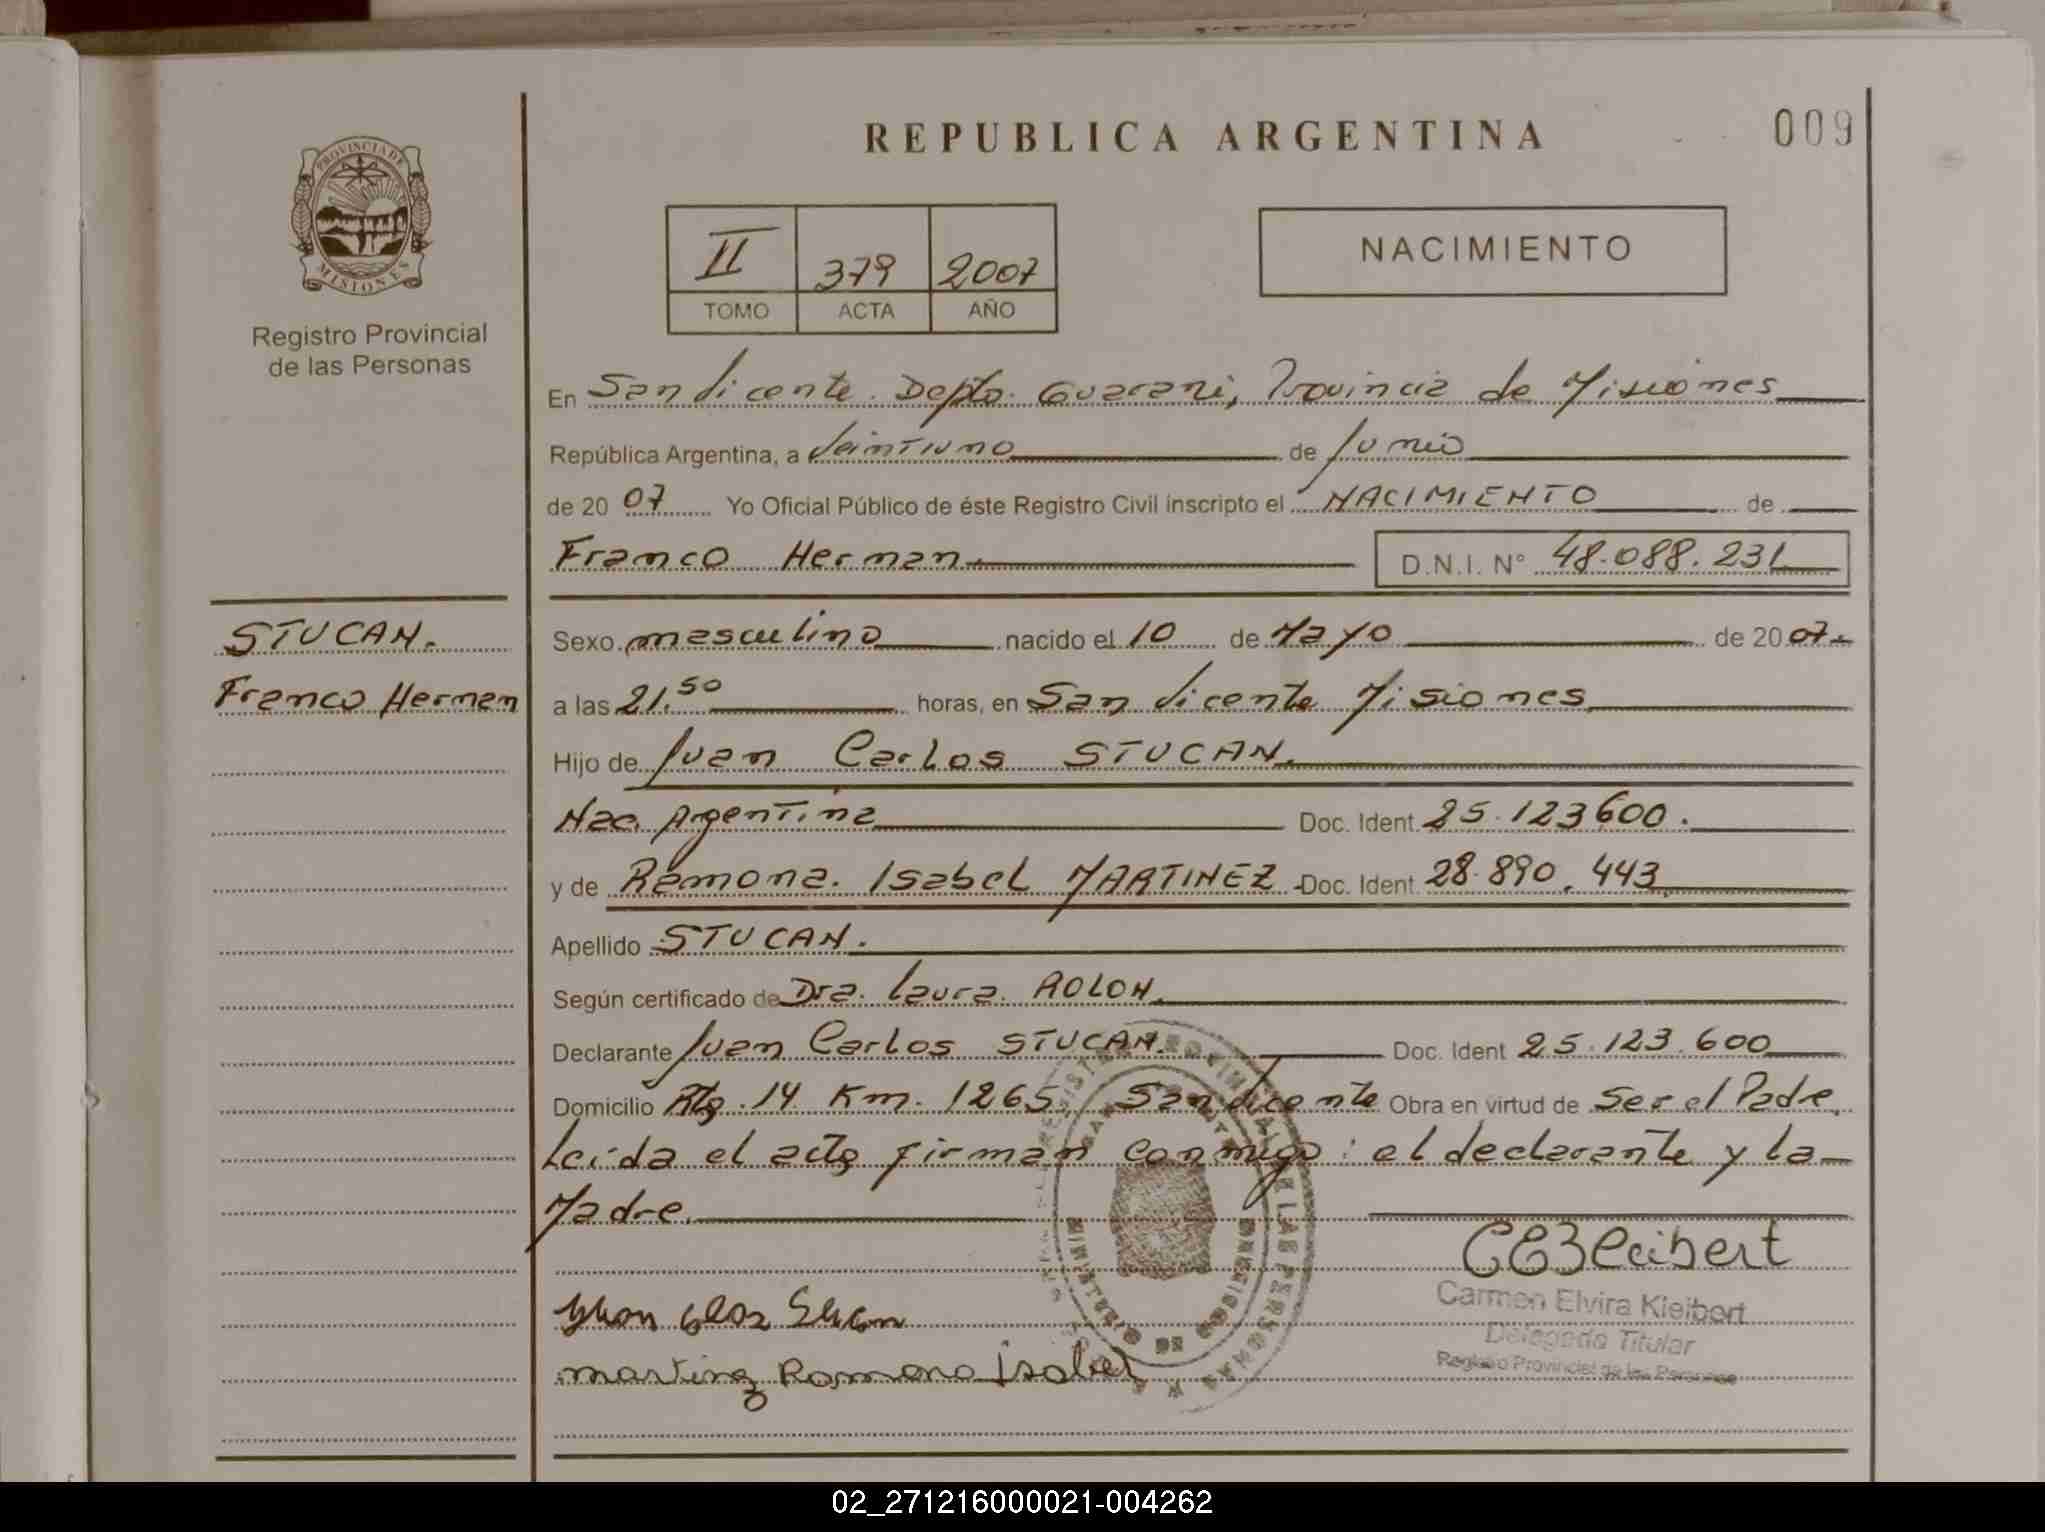 REPUBLICA ARGENTINA
009
PROVINCIA DE MISIONES
Registro Provincial
de las Personas
II 379 2007
TOMO ACTA AÑO
NACIMIENTO
En San Vicente. Depto. Guarani, Provincia de Misiones
República Argentina, a Veintiuno de Junio
de 20 07 Yo Oficial Público de éste Registro Civil inscripto el NACIMIENTO de
Franco Hernan. D.N.I. N° 48.088.231
STUCAN.
Franco Hernan
Sexo masculino nacido el 10 de Mayo de 20 07.
a las 21.50 horas, en San Vicente Misiones
Hijo de Juan Carlos STUCAN.
Nac. Argentina Doc. Ident 25.123600.
y de Ramona. Isabel MARTINEZ Doc. Ident 28.890.443
Apellido STUCAN.
Según certificado de Dra. Laura. ROLON.
Declarante Juan Carlos STUCAN. Doc. Ident 25.123.600
Domicilio Rta. 14 Km. 1265, San Vicente Obra en virtud de Ser el Padre.
Leída el acta firman conmigo: el declarante y la
Madre.
Carmen Elvira Kleibert
Delegada Titular
Registro Provincial de las Personas
martinez Ramona isabel
02_271216000021-004262